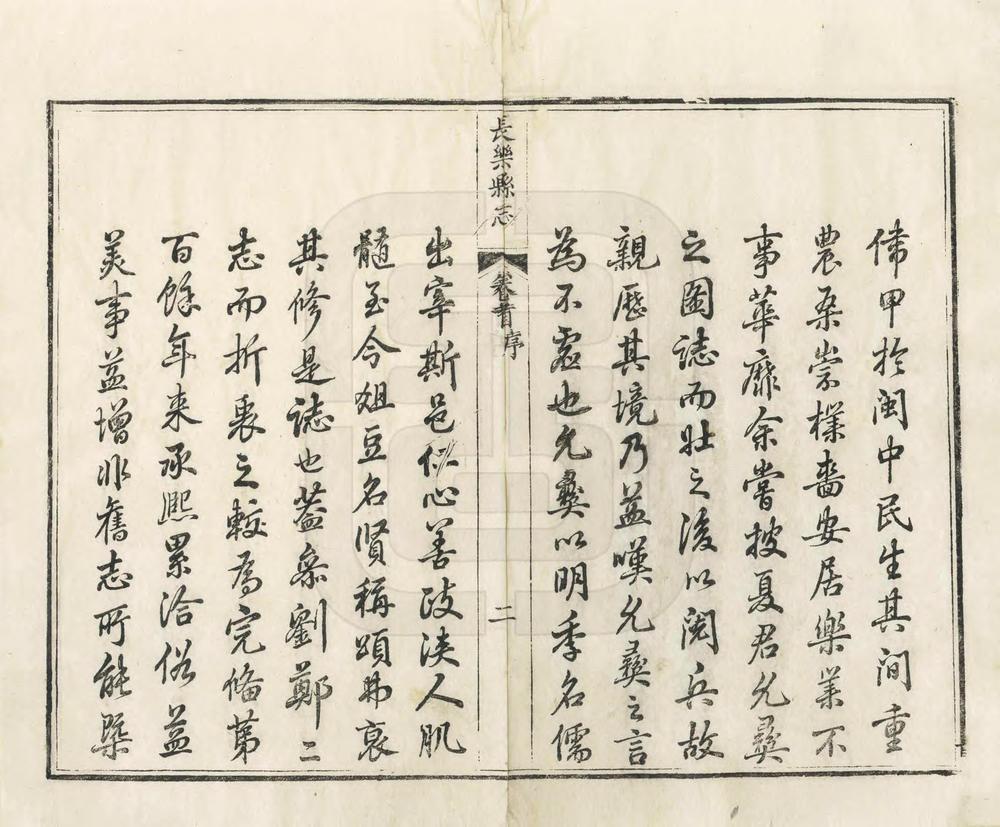 偉甲扵閩中民生其間重
農桑崇樸嗇安居樂業不
事華靡余嘗披夏君允彝
之圖誌而壯之後以閱兵故
親歷其境乃益嘆允彝之言
為不虛也允彝以明季名儒
長樂縣志
卷首序
二
出宰斯邑仁心善政浹人肌
髓至今俎豆名賢稱頌弗衰
其修是誌也葢叅劉鄭二
志而折衷之較為完備第
百餘年来承熙累洽俗益
美事益增非舊志所能槩